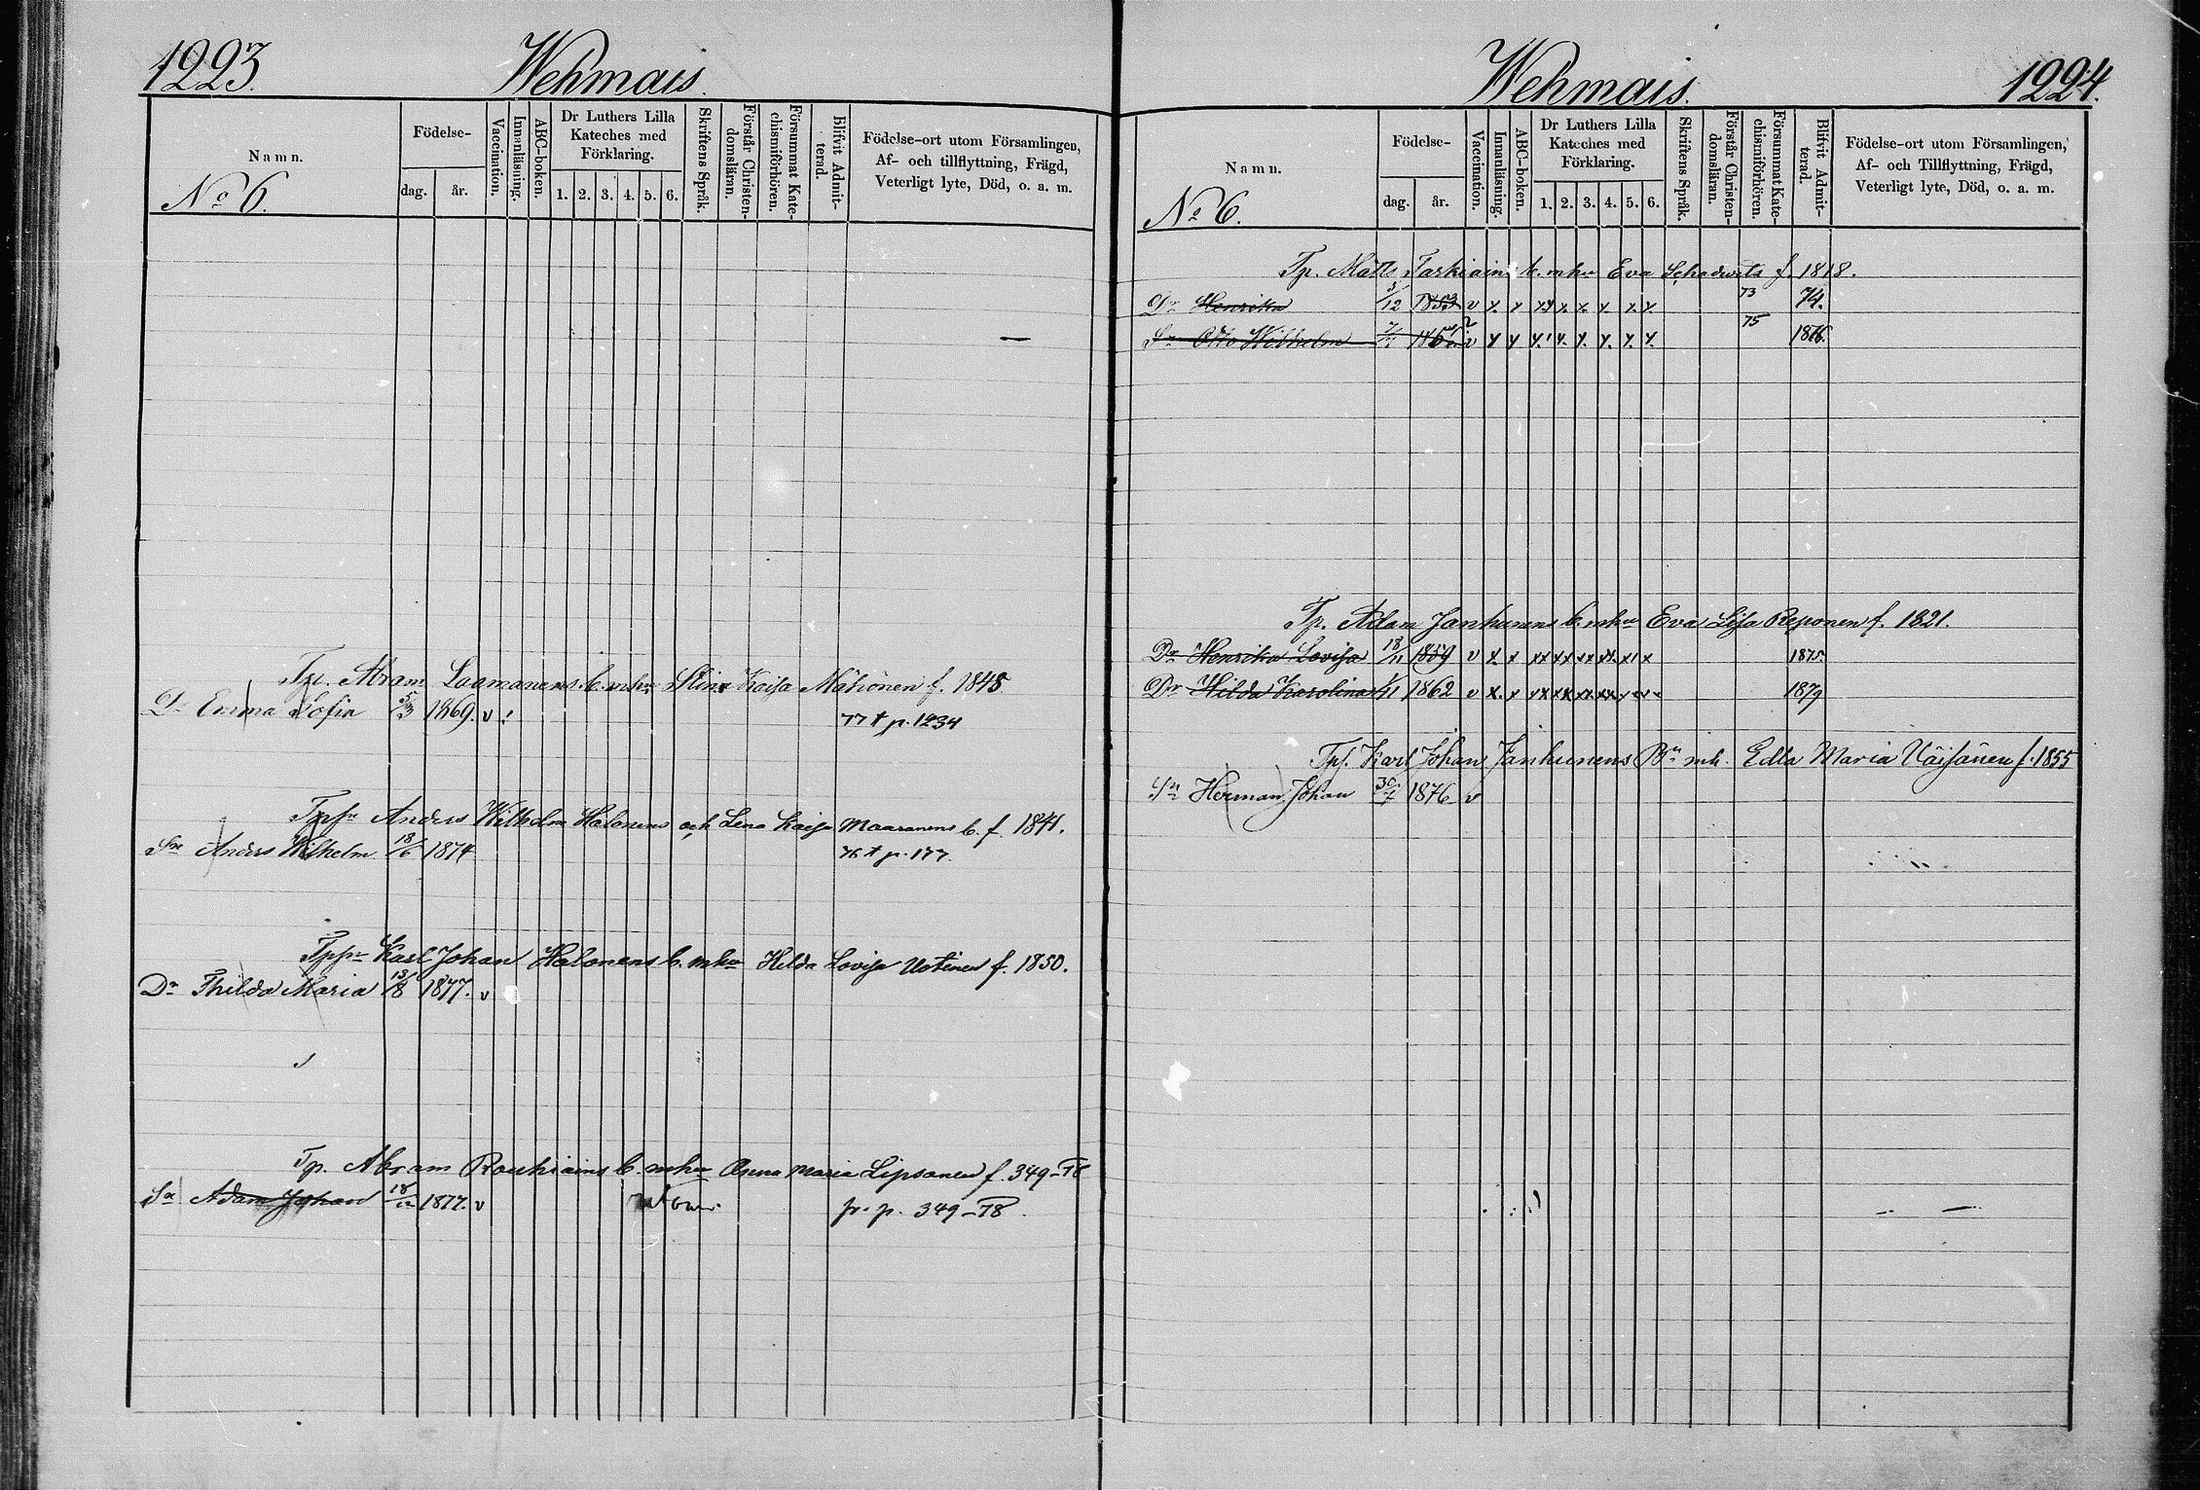 1223.
Wehmais.
Namn.
Födelse-
dag.
år.
Vaccination.
Innanläsning.
ABC-boken.
Dr Luthers Lilla
Kateches med
Förklaring.
1. 2. 3. 4. 5. 6.
Skriftens Språk.
Förstår Christen-
domsläran.
Försummat Kate-
chismiförhören.
Blifvit Admit-
terad.
Födelse-ort utom Församlingen,
Af- och tillflyttning, Frägd,
Veterligt lyte, Död, o. a. m.
No 6.
Abram Laamanens b. mhu Stina Kaisa f. 1848
Dr Emma Sofia 5/3 1869. v 77 t p. 1234
Anders Wilhelm Halonens och Lena Kaisa Maaranens b. f. 1841.
Sn Anders Wilhelm 18/6 1874 76 t p. 177.
Karl Johan Halonens b. mhu Hilda Lovisa Uotinen f. 1850.
Dr Thilda Maria 13/8 1877. v
Tp. Abram b. mhu Anna Maria Lipsanen f. 349-78
Sn Adam Johan 18/12 1877. v fr. p. 349-78
Wehmais.
1224.
Namn.
Födelse-
dag.
år.
Vaccination.
Innanläsning.
ABC-boken.
Dr Luthers Lilla
Kateches med
Förklaring.
1. 2. 3. 4. 5. 6.
Skriftens Språk.
Förstår Christen-
domsläran.
Försummat Kate-
chismiförhören.
Blifvit Admit-
terad.
Födelse-ort utom Församlingen,
Af- och Tillflyttning, Frägd,
Veterligt lyte, Död, o. a. m.
No 6.
Tp. Matts Tarkiains b. mhu Eva f. 1818.
Dr Henrika 1853 v x x x x x x x x 73 74.
Sn Otto Wilhelm v x x x x x x x x 75 1876.
Tp. Adam Janhunens b. mhu Eva Lisa Reponen f. 1821.
Dr Henrika Lovisa 18/11 1859 v x x xx xx xx xx x x 1875.
Dr Hilda Karolina 1862 v x x xx xx xx xx 1879
Karl Johan Janhunens mh. Edla Maria Väisänen f. 1855
Sn Herman Johan 30/7 1876 v